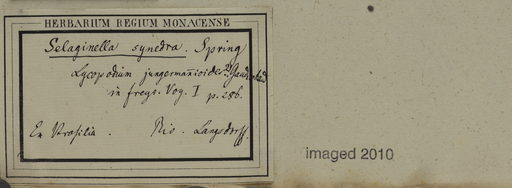 HERBARIUM REGIUM MONACENSE
Selaginella synedra. Spring
Lycopodium jungermannioides Gaudichaud
in freyc. Voy. I p. 286.
Ex Brasilia. Rio. Langsdorff.
imaged 2010